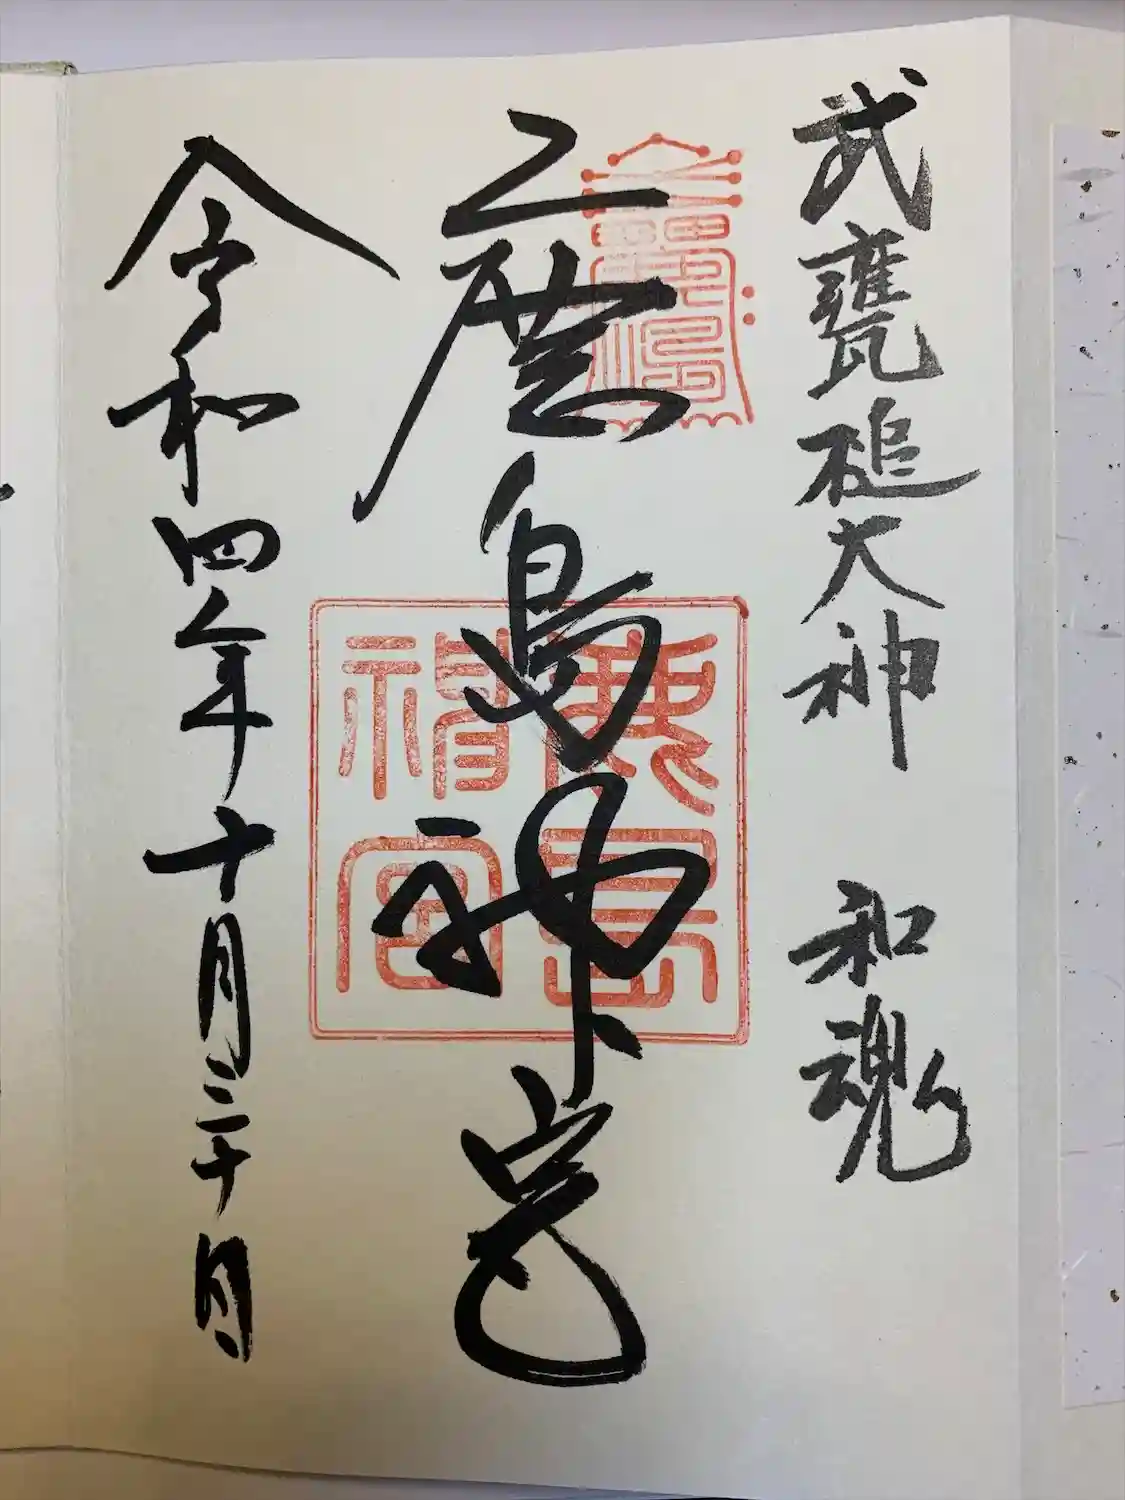 武甕槌大神 和魂
鹿島神宮
鹿島神宮
令和四年十月三十日